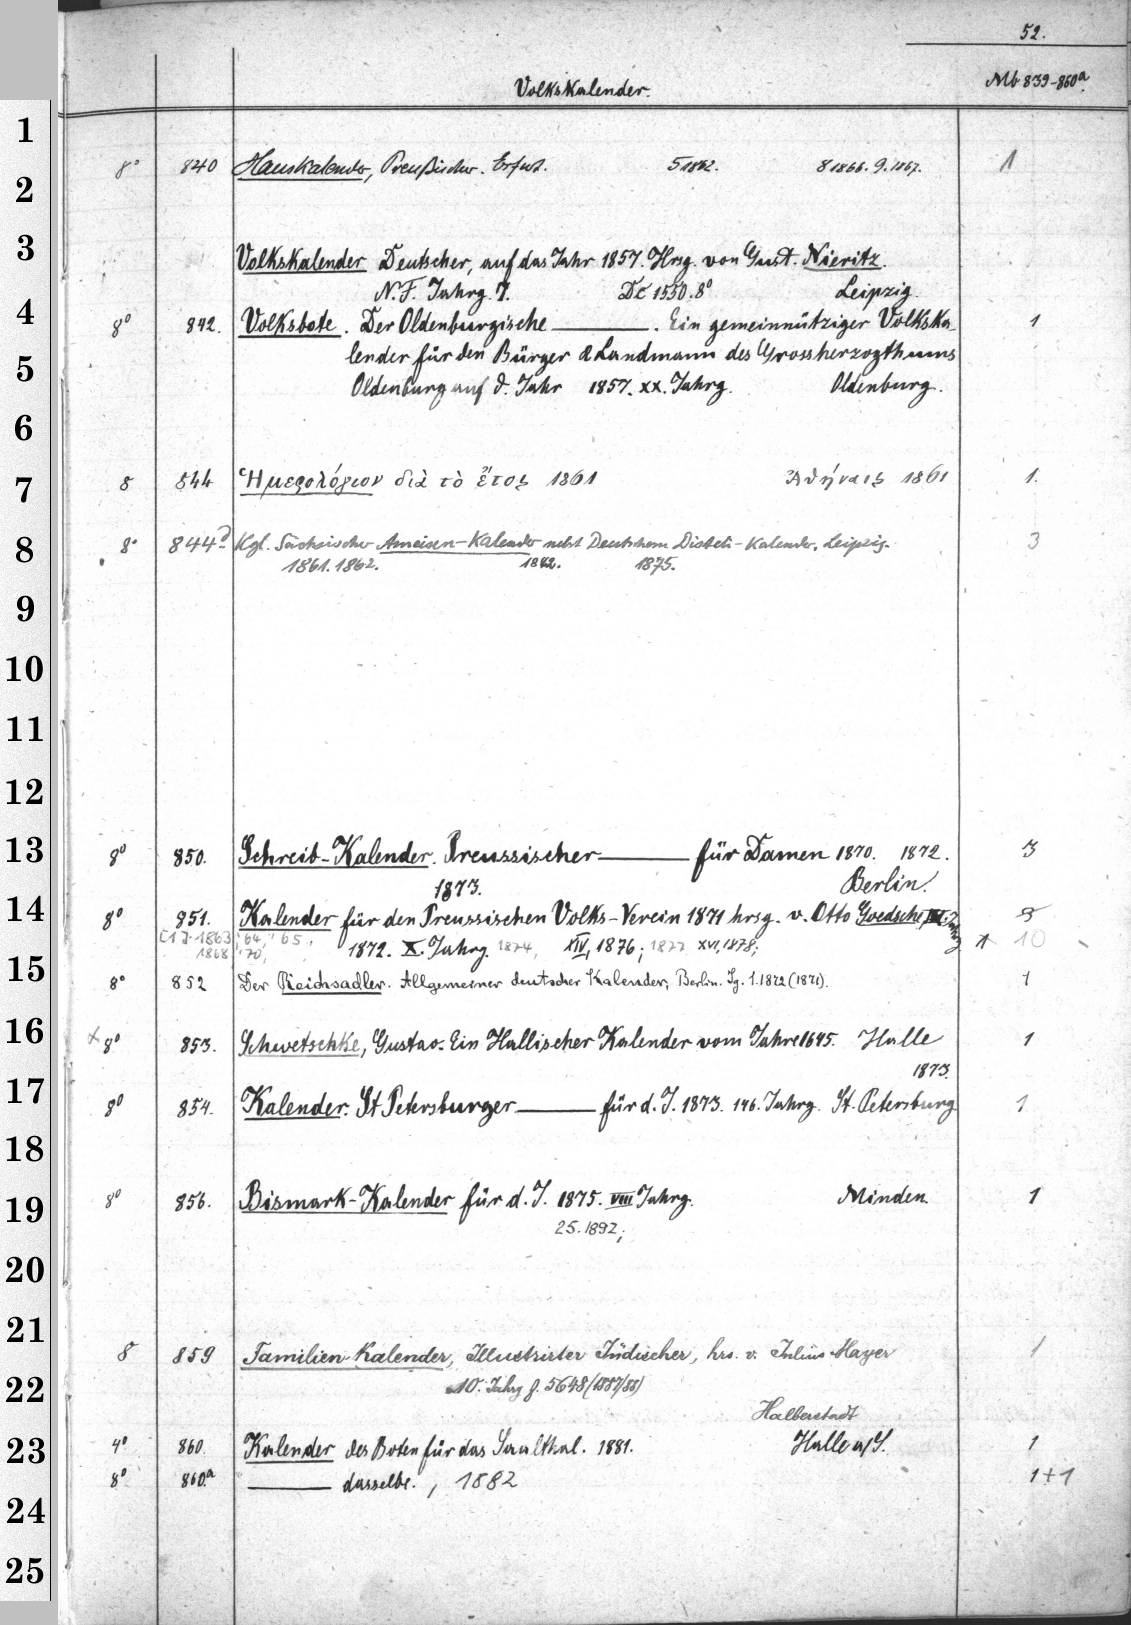 52.
Volkskalender. Mb 839-860a.
1
8° 840 Hauskalender, Preußischer. Erfurt. 5 1862. 8 1866. 9. 1867. 1
2
3
Volkskalender Deutscher, auf das Jahr 1857. Hrsg. von Gust. Nieritz.
N. F. Jahrg. 7. De 1550. 8° Leipzig.
4
8° 842. Volksbote. Der Oldenburgische ———. Ein gemeinnütziger Volkska-
lender für den Bürger & Landmann des Grossherzogthums
5
Oldenburg auf d. Jahr 1857. XX. Jahrg. Oldenburg.
6
7
8 844 Ἡμερολόγιον διὰ τὸ ἔτος 1861 Ἀθήναις 1861 1.
8
8° 844a Kgl. Sächsischer Ameisen-Kalender nebst Deutschem Kalender. Leipzig. 3
1861. 1862. 1872. 1875.
9
10
11
12
13
8° 850. Schreib-Kalender. Preussischer ——— für Damen 1870. 1872. 3
1873. Berlin.
14
8° 851. Kalender für den Preussischen Volks-Verein 1871 hrsg. v. Otto Goedsche,
[1 J. 1863, '64, '65, 1872. X. Jahrg. 1874, XIV, 1876; 1877 XVI, 1878; 1 10
1868 '70,
15
8° 852 Der Reichsadler. Allgemeiner deutscher Kalender, Berlin. Jg. 1. 1872 (1871). 1
16
x 8° 853. Schwetschke, Gustav. Ein Hallischer Kalender vom Jahre 1645. Halle 1
1873.
17
8° 854. Kalender. St Petersburger ——— für d. J. 1873. 146. Jahrg. St. Petersburg 1
18
19
8° 856. Bismark-Kalender für d. J. 1875. VIII Jahrg. Minden. 1
25. 1892;
20
21
8 859 Familien-Kalender, Illustrirter Jüdischer, hrs. v. Julius Mayer 1
22
10. Jahrg f. 5648 (1887/88)
Halberstadt
23
4° 860. Kalender des Boten für das Saalthal. 1881. Halle a/S. 1
8° 860.a ——— dasselbe., 1882 1+1
24
25